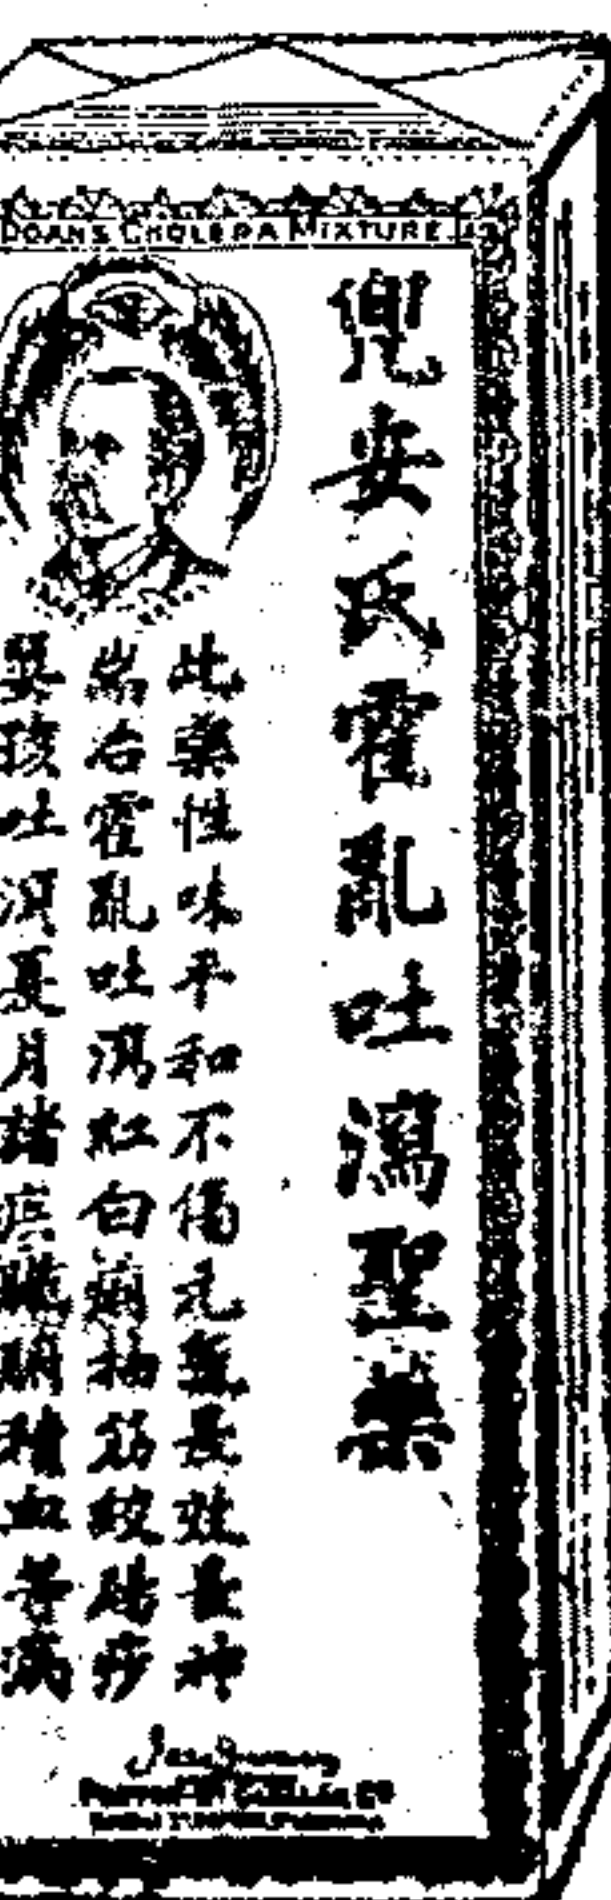 DOAN'S CHOLERA MIXTURE
兜安氏霍亂吐瀉聖藥
此藥性味平和不傷元氣最效最神
岩右霍亂吐瀉紅白痢抽筋絞腸痧
嬰孩吐瀉夏月諸疾積血等